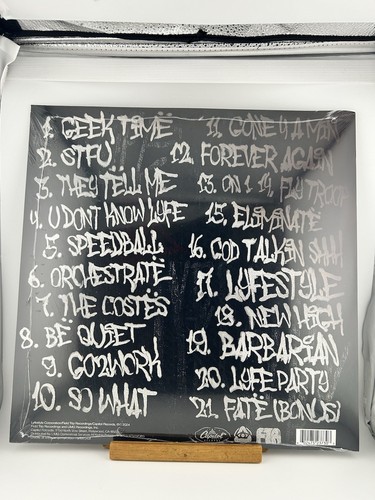 1. GEEK TIME
2. STFU
3. THEY TELL ME
4. U DONT KNOW LYFE
5. SPEEDBALL
6. ORCHESTRATË
7. THE COSTËS
8. BË QUIET
9. GO2WORK
10. SO WHAT
11. GONE 4 A MIN
12. FOREVER AGAIN
13. ON 1
14. FKY TROOF
15. ELIMINATË
16. GOD TALKIN SHHH
17. LYFESTYLE
18. NEW HIGH
19. BARBARIAN
20. LYFE PARTY
21. FATË (BONUS)
Capitol